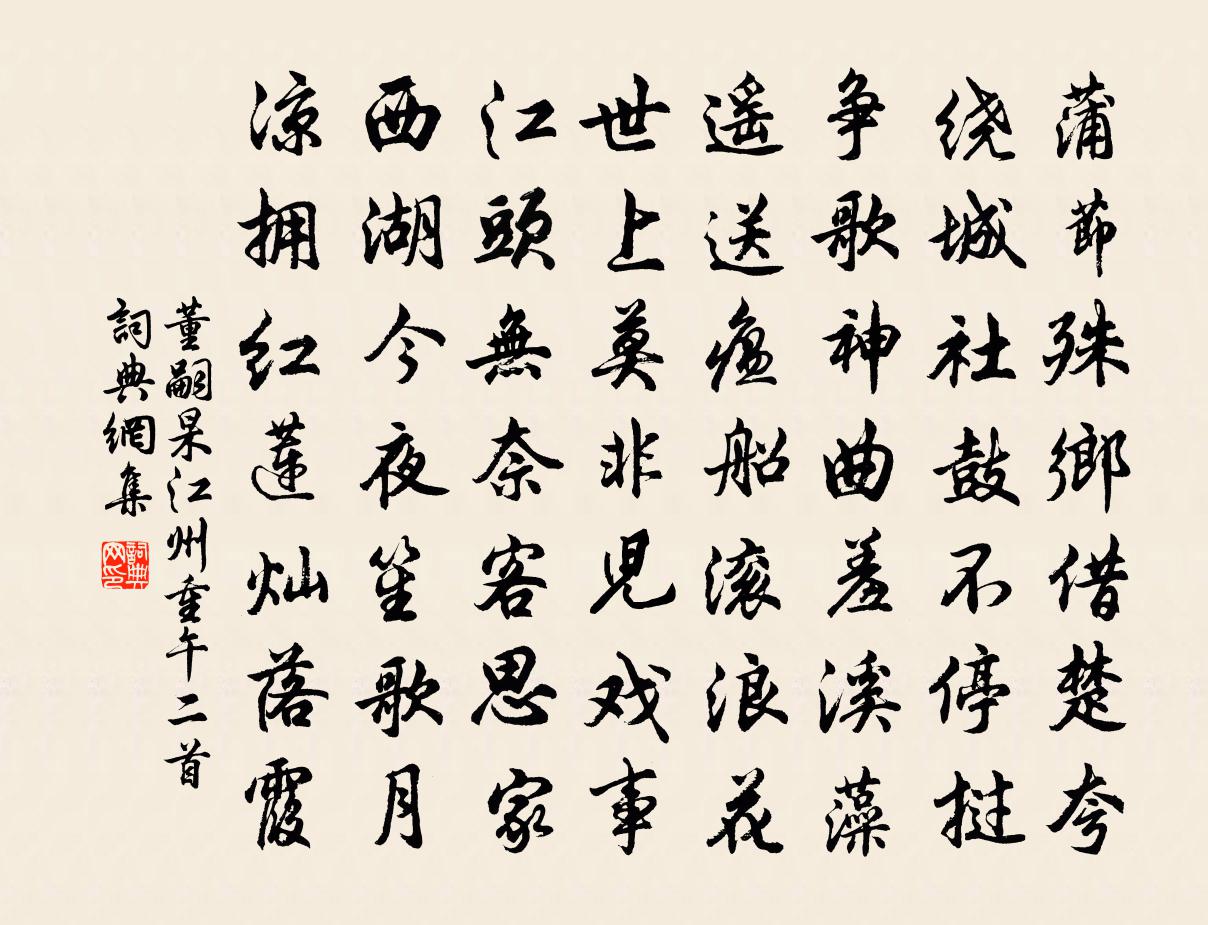 蒲節殊鄉借楚夸
绕城社鼓不停挝
争歌神曲羞溪藻
遥送瘟船滚浪花
世上莫非児戏事
江頭無奈客思家
西湖今夜笙歌月
凉拥红蓮灿落霞
董嗣杲江州重午二首
詞典網集
詞典网印